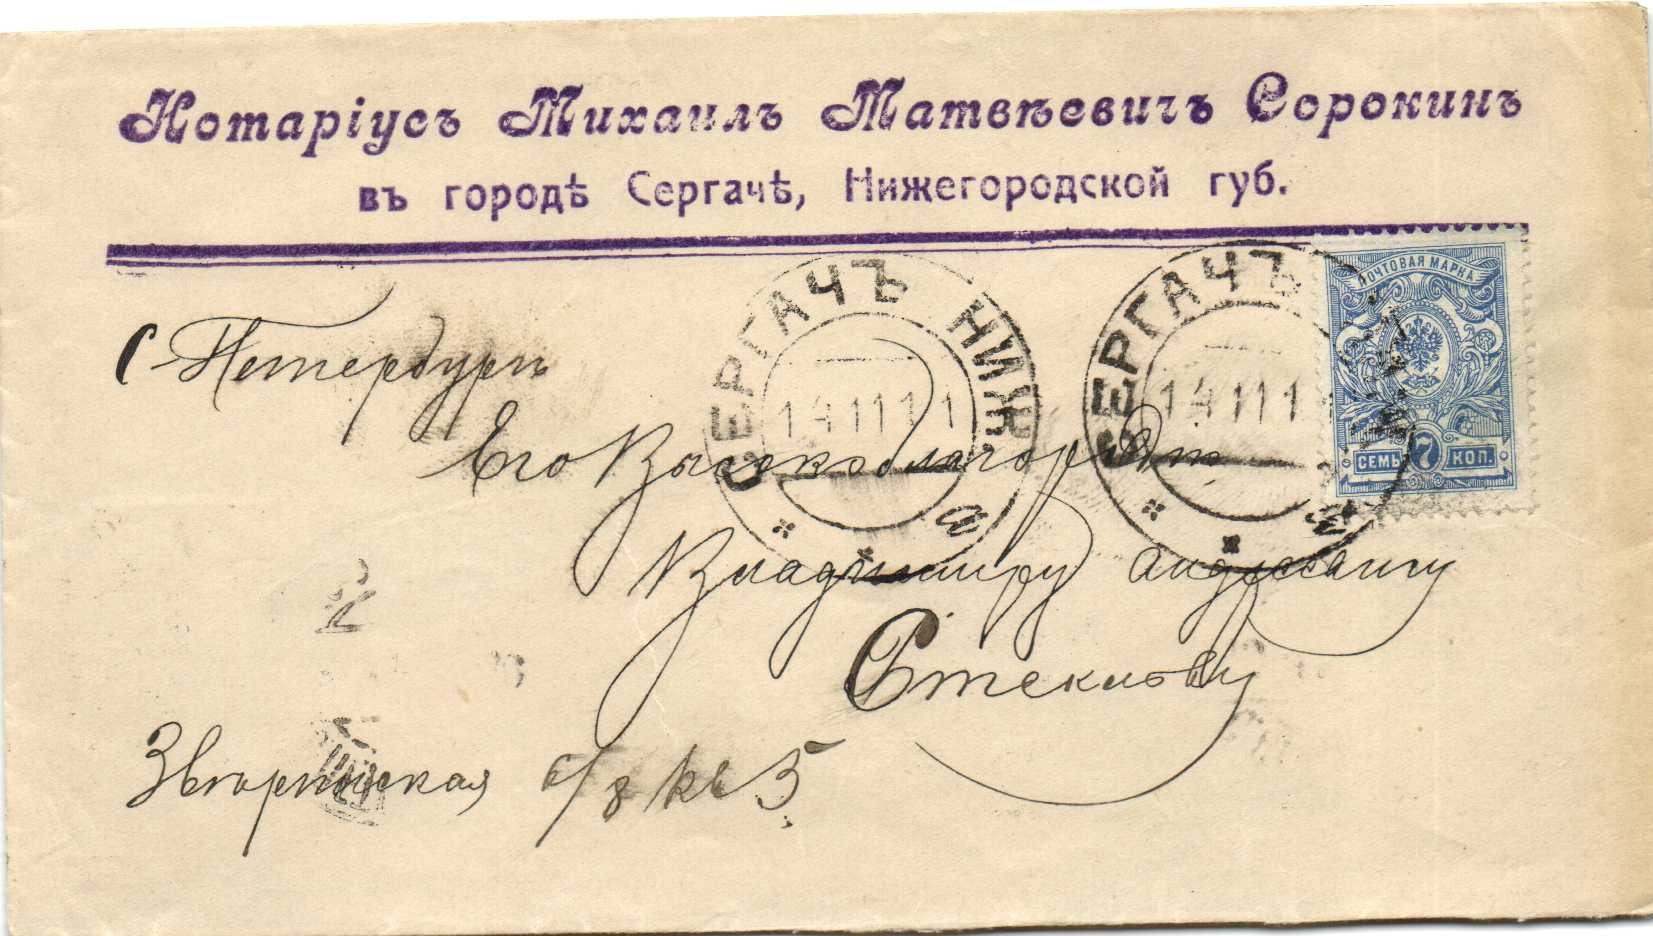 Нотаріусъ Михаилъ Матвѣевичъ Сорокинъ
въ городѣ Сергачѣ, Нижегородской губ.
ПОЧТОВАЯ МАРКА
СЕМЬ 7 КОП.
СЕРГАЧЪ НИЖ.
14 11 11
а
СЕРГАЧЪ
14 11 1
С-Петербургъ
Его Высокоблагородію
Владиміру Андреевичу
Стеклову
Звѣринская 6/8 кв 5